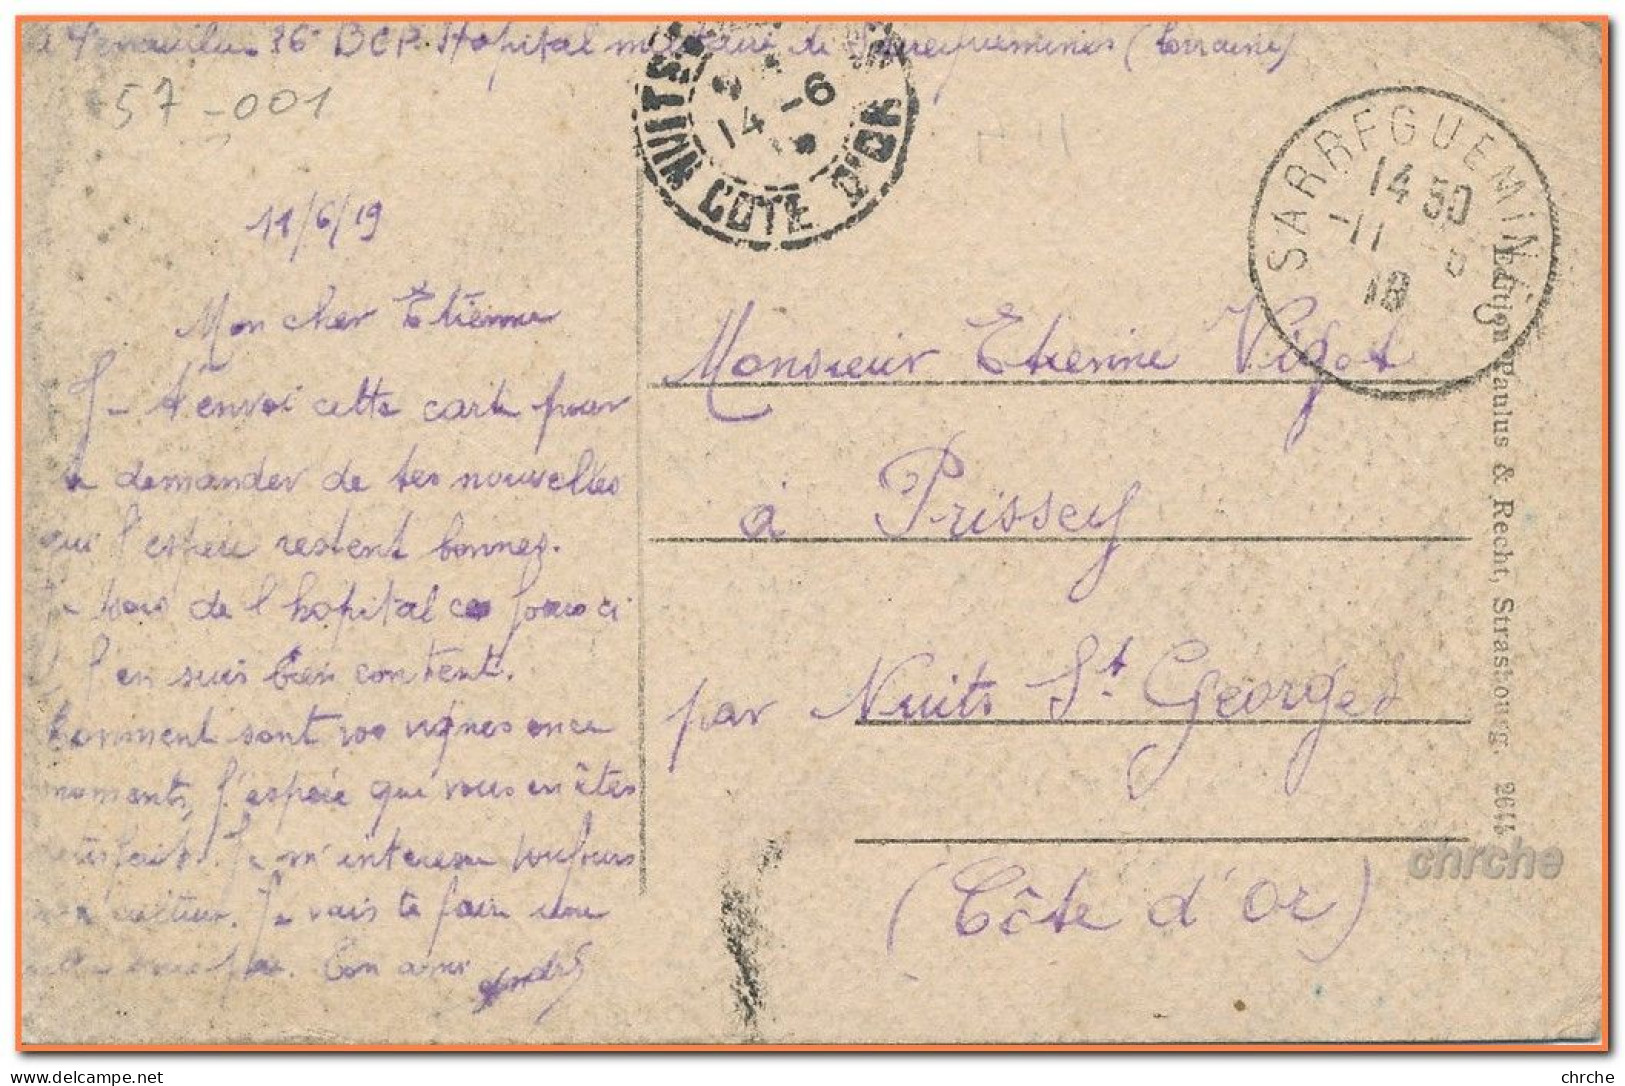 26e BCP. Hopital militaire de Sarreguemines (Lorraine)
57-001
NUITS
COTE D'OR
14
6
SARREGUEMINES
14 50
-11 6
19
11/6/19
Mon cher Etienne
J- t'envoi cette carte pour
te demander de tes nouvelles
qui j'espère restent bonnes.
Je sors de l'hopital ces jours ci
j'en suis bien content.
Comment sont vos vignes en ce
moment, j'espère que vous en êtes
satisfait. Je m'interesse toujours
Je vais te faire une
Ton ami André
Monsieur Etienne Vigot
à Prissey
par Nuits St Georges
(Côte d'or)
Edition Paulus & Recht, Strasbourg. 2644
chrche
delcampe.net
chrche